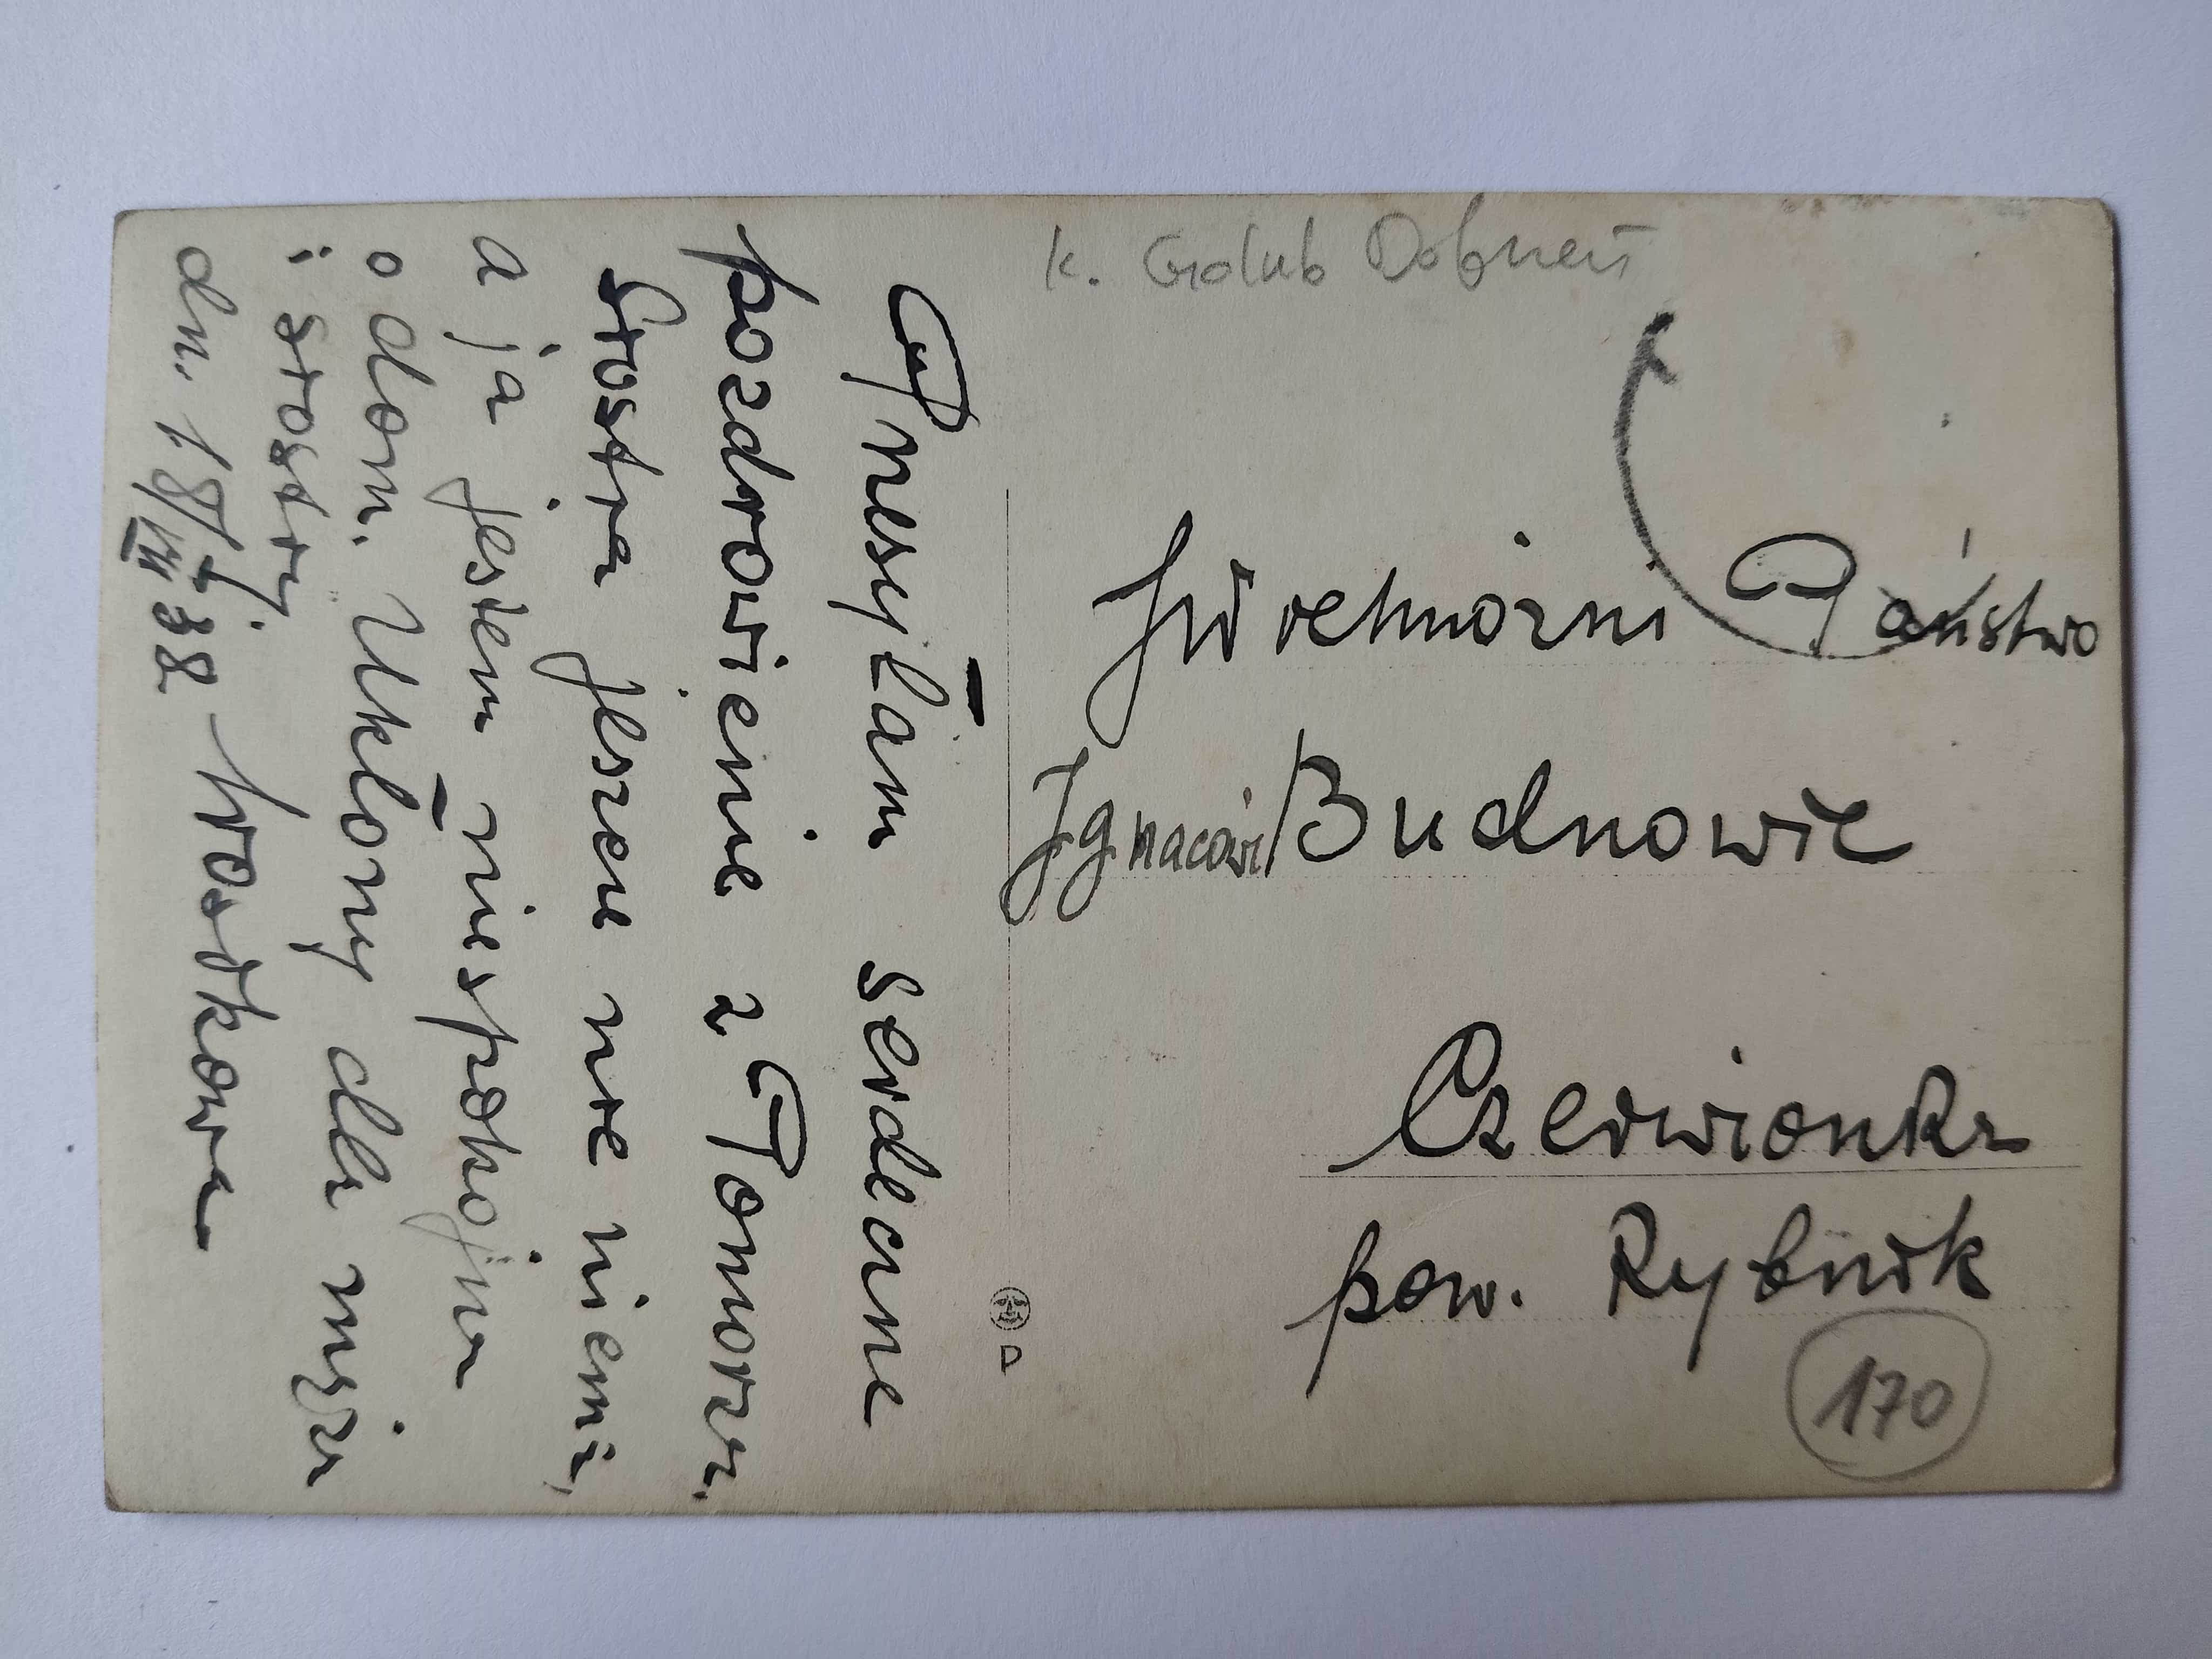 Przesyłam serdeczne
pozdrowienie z Pomorza.
Siostra jeszcze nie niemi,
a ja jestem niespokojna
o dom. Ukłony dla męża
i siostry.
dn. 18/VII 38
k. Golub Dobrzeń
JWielmożni Państwo
Ignacowi Budnowie
Czerwionka
pow. Rybnik
170